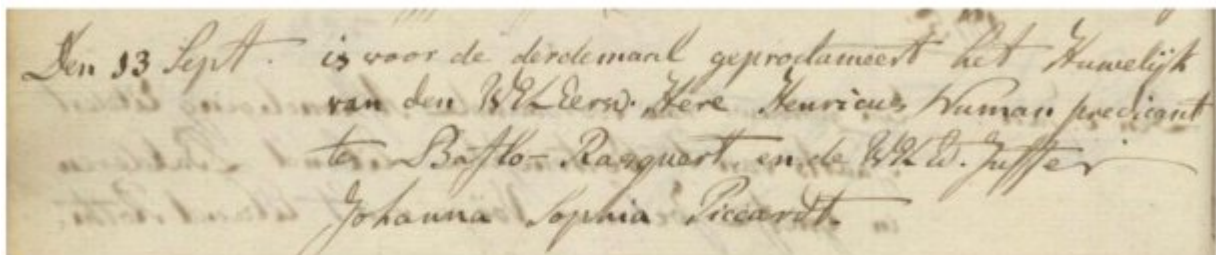 Den 13 Sept. is voor de derdemaal geproclameert het Huwelijk
van den WEL Eerw. Here Henricus Numan predicant
te Bafflo - Rasquert en de WEL Ed. Juffer
Johanna Sophia Piccardt.